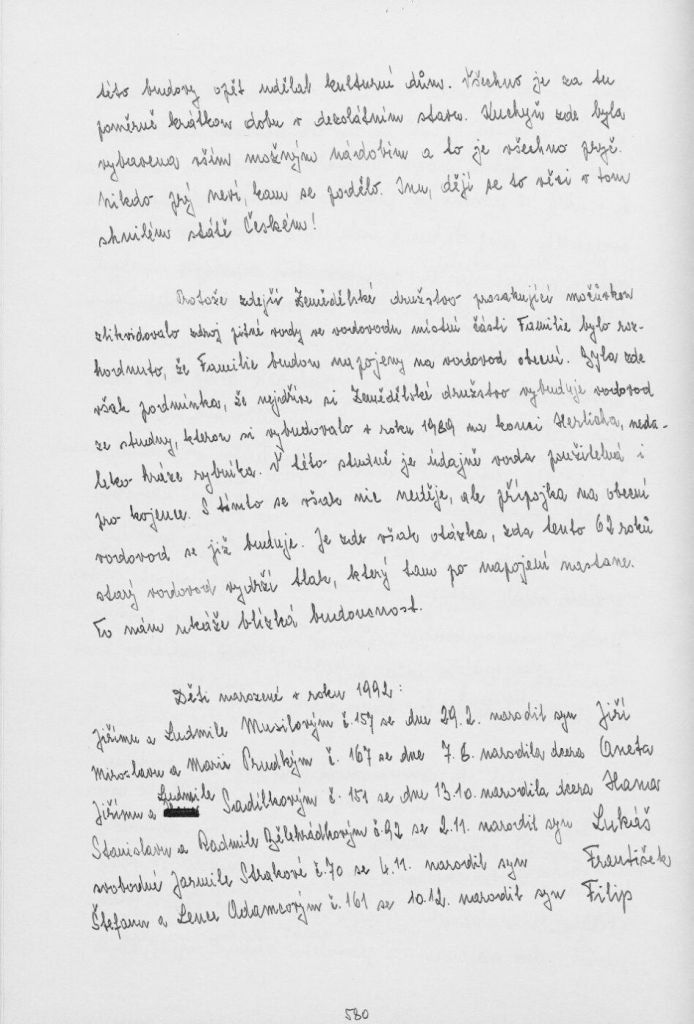 této budovy opět udělat kulturní dům. Všechno je za tu
poměrně krátkou dobu v dezolátním stavu. Kuchyň zde byla
vybavena vším možným nádobím a to je všechno pryč.
Nikdo prý neví, kam se podělo. Inu, dějí se to věci v tom
shnilém státě Českém!
Protože zdejší Zemědělské družstvo prosakující močůvkou
zlikvidovalo zdroj pitné vody ve vodovodu místní části Familie bylo roz-
hodnuto, že Familie budou napojeny na vodovod obecní. Byla zde
však podmínka, že nejdříve si Zemědělské družstvo vybuduje vodovod
ze studny, kterou si vybudovalo v roku 1989 na konci Herlicha, neda-
leko hráze rybníka. V této studně je údajně voda použitelná i
pro kojence. S tímto se však nic neděje, ale přípojka na obecní
vodovod se již buduje. Je zde však otázka, zda tento 62 roků
starý vodovod vydrží tlak, který tam po napojení nastane.
To nám ukáže blízká budoucnost.
Děti narozené v roku 1992:
Jiřímu a Ludmile Musilovým č.157 se dne 29.2. narodil syn Jiří
Miroslavu a Marii Prudkým č. 167 se dne 7.8. narodila dcera Aneta
Jiřímu a Ludmile Sadílkovým č. 151 se dne 13.10. narodila dcera Hana
Stanislavu a Radmile Bělehrádkovým č.92 se 2.11. narodil syn Lukáš
svobodné Jarmile Strakové č.70 se 4.11. narodil syn František
Štefanu a Lence Adamcovým č.161 se 10.12. narodil syn Filip
580